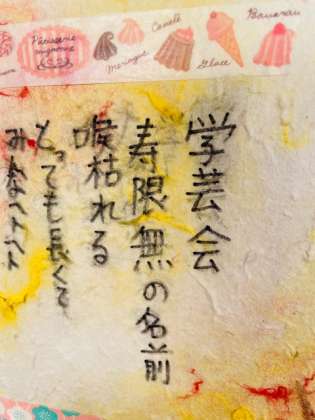 Pâtisserie
mignonne
Meringue
Canelé
Glace
Bavarois
学芸会
寿限無の名前
喉枯れる
とっても長くて
みんなヘトヘト